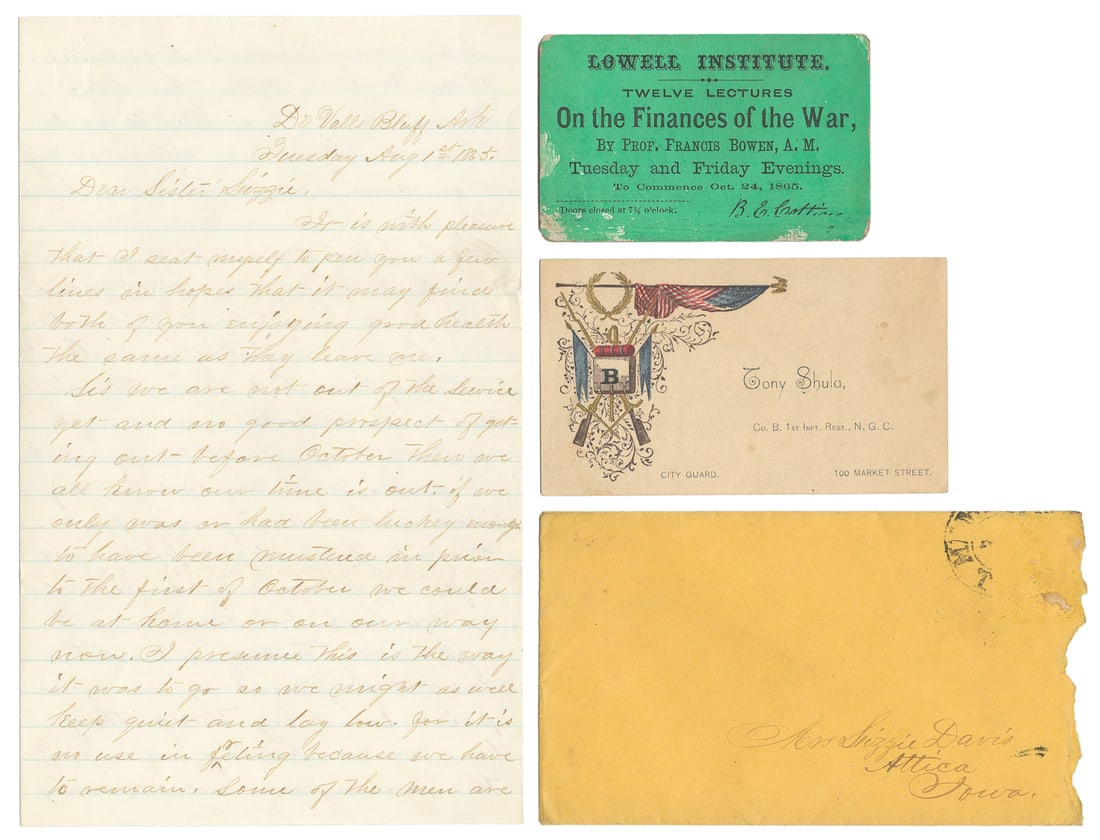 De Valls Bluff Ark
Tuesday Aug 1st 1865.
Dear Sister Lizzie.
It is with pleasure
that I seat myself to pen you a few
lines in hopes that it may find
both of you enjoying good health
the same as they leave me.
Sis we are not out of the service
yet and no good prospect of got-
ing out before October then we
all know our time is out. if we
only was or had been luckey enough
to have been musterd in prior
to the first of October we could
be at home or on our way
now. I presume this is the way
it was to go so we might as well
keep quiet and lay low. for it is
no use in freting because we have
to remain. Some of the men are
LOWELL INSTITUTE.
TWELVE LECTURES
On the Finances of the War,
BY PROF. FRANCIS BOWEN, A. M.
Tuesday and Friday Evenings.
To Commence Oct. 24, 1865.
Doors closed at 7¾ o'clock.
B. E. Cotting
B
Tony Shula,
Co. B, 1st Inft. Regt., N. G. C.
CITY GUARD.
100 MARKET STREET.
Mrs Lizzie Davis
Attica
Iowa.